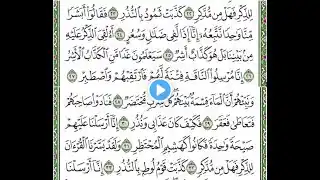 لِلذِّكْرِ فَهَلْ مِن مُّدَّكِرٍ ٢٢ كَذَّبَتْ ثَمُودُ بِٱلنُّذُرِ ٢٣ فَقَالُوٓا۟ أَبَشَرًا
مِّنَّا وَٰحِدًا نَّتَّبِعُهُۥٓ إِنَّآ إِذًا لَّفِى ضَلَٰلٍ وَسُعُرٍ ٢٤ أَءُلْقِىَ ٱلذِّكْرُ عَلَيْهِ
مِنۢ بَيْنِنَا بَلْ هُوَ كَذَّابٌ أَشِرٌ ٢٥ سَيَعْلَمُونَ غَدًا مَّنِ ٱلْكَذَّابُ ٱلْأَشِرُ ٢٦
إِنَّا مُرْسِلُوا۟ ٱلنَّاقَةِ فِتْنَةً لَّهُمْ فَٱرْتَقِبْهُمْ وَٱصْطَبِرْ ٢٧
وَنَبِّئْهُمْ أَنَّ ٱلْمَآءَ قِسْمَةٌۢ بَيْنَهُمْ كُلُّ شِرْبٍ مُّحْتَضَرٌ ٢٨ فَنَادَوْا۟ صَاحِبَهُمْ
فَتَعَاطَىٰ فَعَقَرَ ٢٩ فَكَيْفَ كَانَ عَذَابِى وَنُذُرِ ٣٠ إِنَّآ أَرْسَلْنَا عَلَيْهِمْ
صَيْحَةً وَٰحِدَةً فَكَانُوا۟ كَهَشِيمِ ٱلْمُحْتَظِرِ ٣١ وَلَقَدْ يَسَّرْنَا ٱلْقُرْءَانَ
لِلذِّكْرِ فَهَلْ مِن مُّدَّكِرٍ ٣٢ كَذَّبَتْ قَوْمُ لُوطٍۭ بِٱلنُّذُرِ ٣٣ إِنَّآ أَرْسَلْنَا